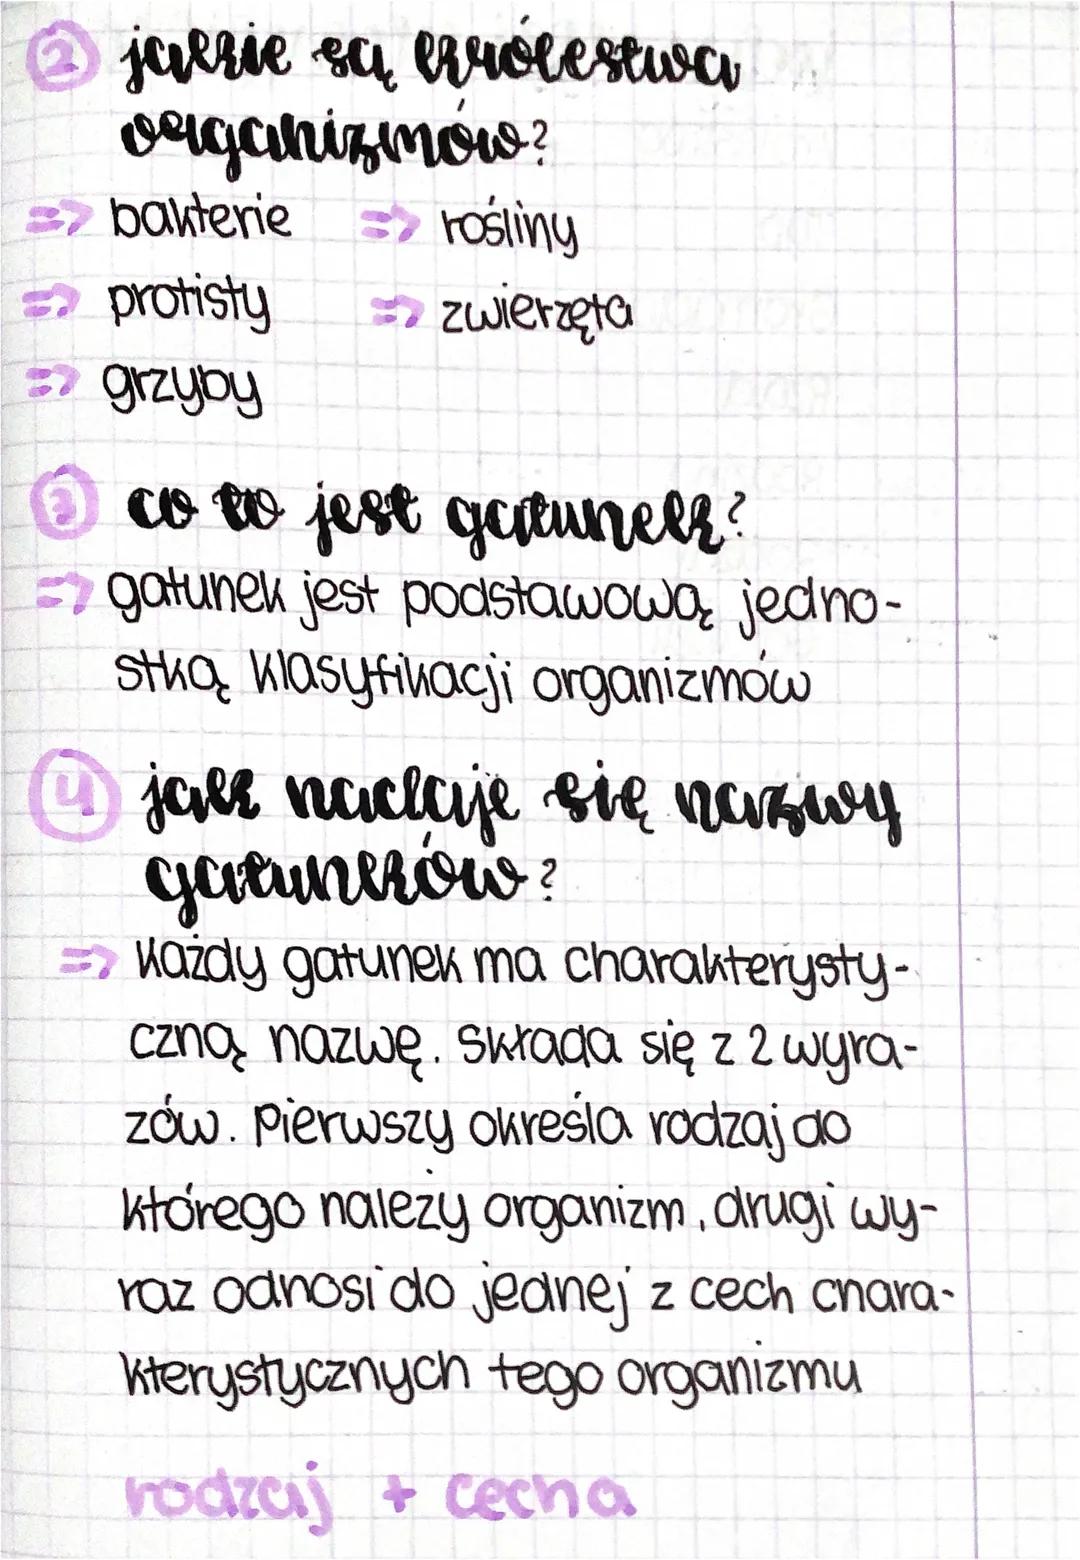 2 jakie są królestwa
organizmów?
=> bakterie => rośliny
=> protisty => zwierzęta
=> grzyby
3 co to jest gatunek?
=> gatunek jest podstawową jedno-
stką klasyfikacji organizmów
4 jak nadaje się nazwy
gatunków?
=> każdy gatunek ma charakterysty-
czną nazwę. składa się z 2 wyra-
zów. pierwszy określa rodzaj do
którego należy organizm, drugi wy-
raz odnosi do jednej z cech chara-
kterystycznych tego organizmu
rodzaj + cecha